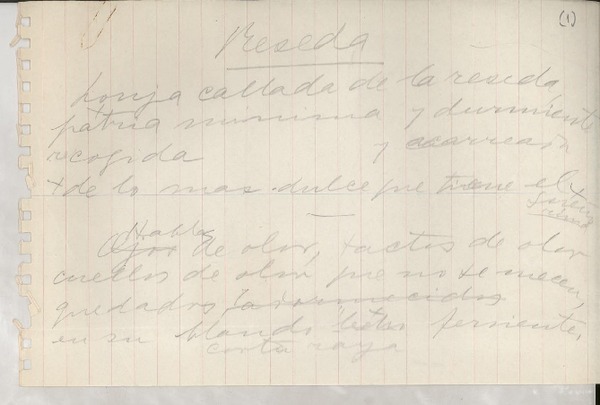 (1)
Reseda
Lonja callada de la reseda,
patria mínima y durmiente
recogida y acarreada
+ de lo mas dulce que tiene el
Habla
Ojos de olor, tactos de olor
cuellos de olor que no te mecen,
quedados
en su blando ferviente.
corta raya